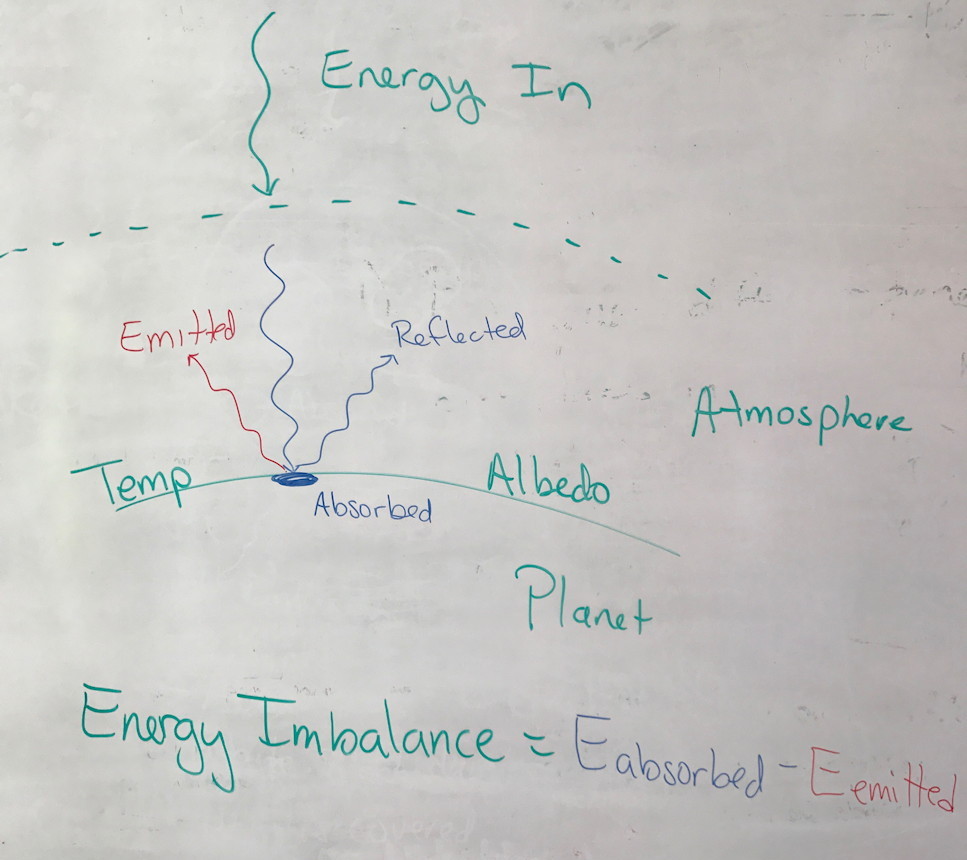 Energy In
Emitted
Reflected
Atmosphere
Temp
Albedo
Absorbed
Planet
Energy Imbalance = E absorbed - E emitted